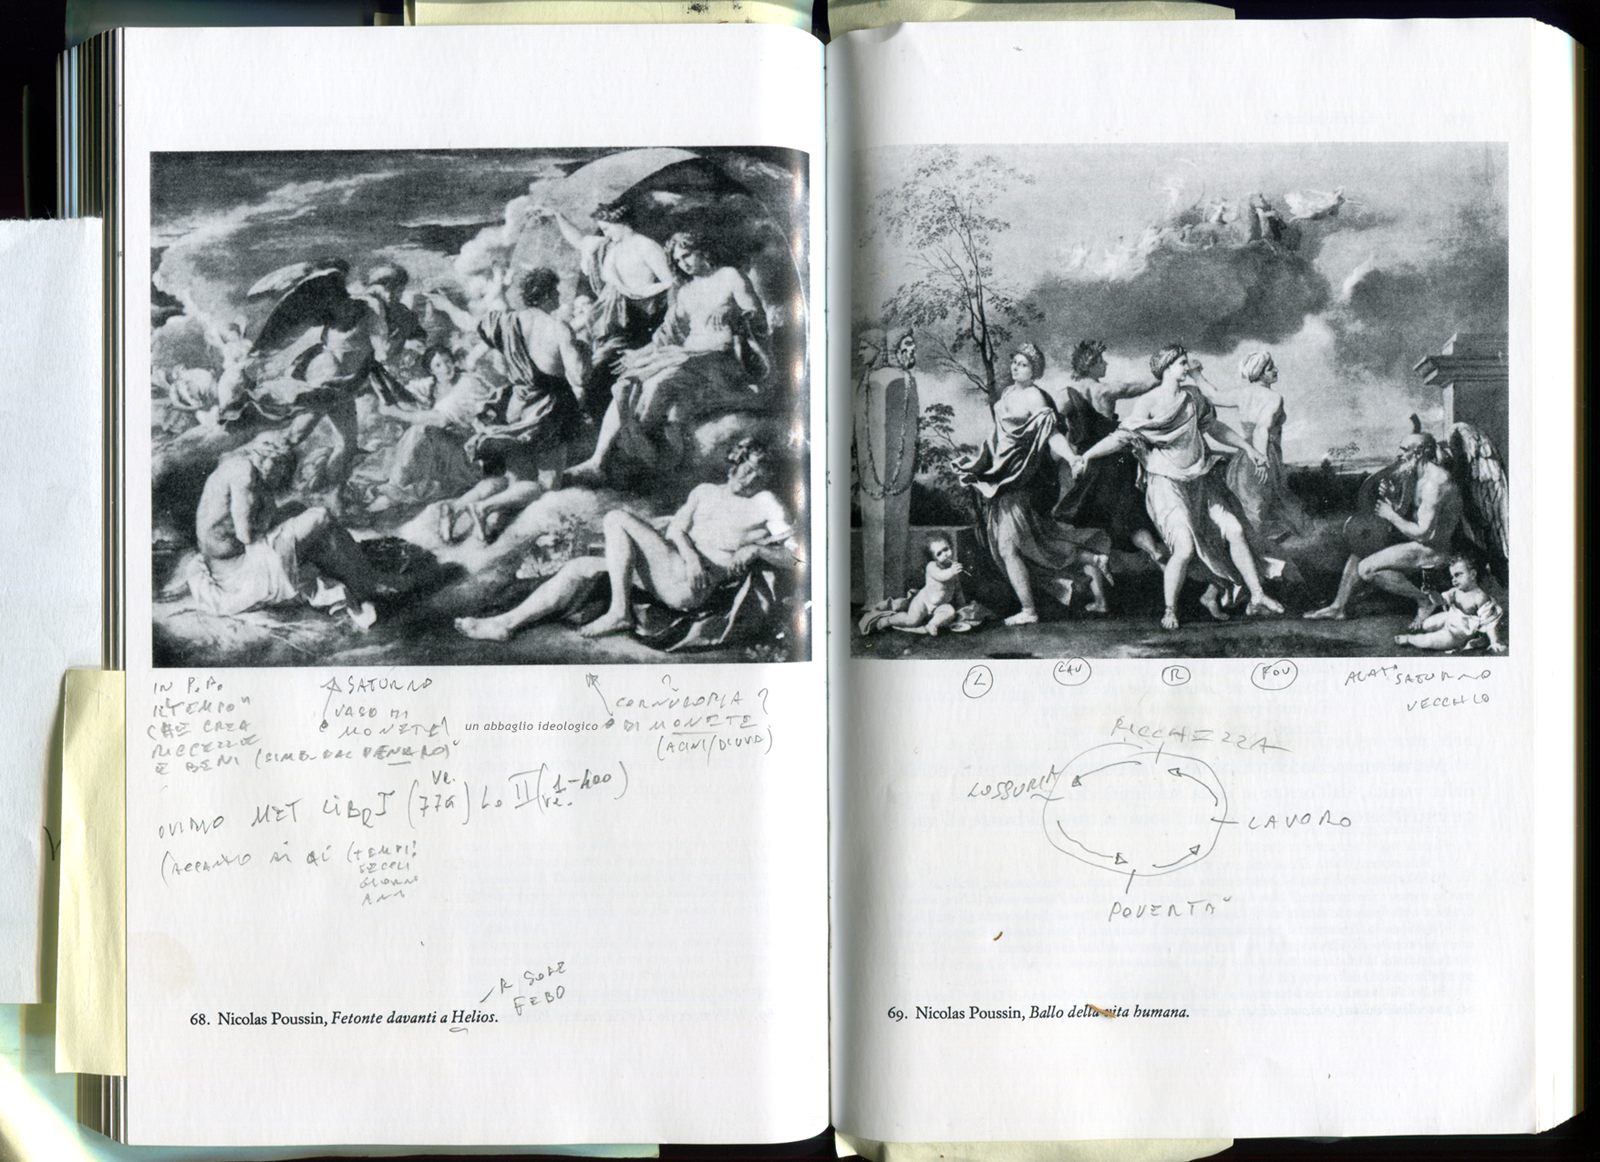 IN P.A.
IL "TEMPO"
CHE CREA
RICCEZZE
E BENI (SIMB. DAL DENARO)
SATURNO
VASO DI
MONETE!
un abbaglio ideologico
?
CORNUCOPIA ?
DI MONETE
(ACINI/DI UVA)
OVIDIO MET LIBRI I (779) LO II (1-400)
Ve.
ve.
(ACCANTO DI QUI (TEMPI!
SECOLI
GIORNI
ANNI
R SOLE
FEBO
68. Nicolas Poussin, Fetonte davanti a Helios.
L
LAV
R
POV
ALATO SATURNO
VECCHIO
RICCHEZZA
LUSSURIA
LAVORO
POVERTA'
69. Nicolas Poussin, Ballo della vita humana.